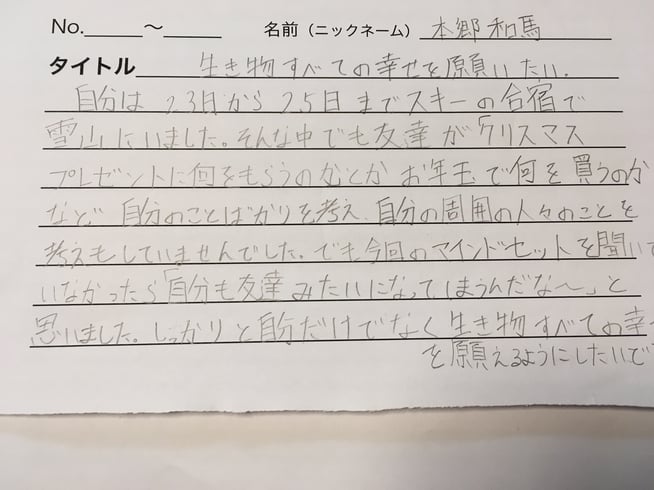 No.____～____ 名前（ニックネーム） 本郷和馬
タイトル 生き物すべての幸せを願いたい.
自分は 23日から 25日までスキーの合宿で
雪山にいました。そんな中でも友達が「クリスマス
プレゼントに何をもらうのかとか お年玉で何を買うのか
など" 自分のことばかりを考え、自分の周囲の人々のことを
考えもしていませんでした。でも今回のマインドセットを聞い
いなかったら「自分も友達みたいになってしまうんだな～」と
思いました。しっかりと自分だけでなく生き物すべての幸
を願えるようにしたいで